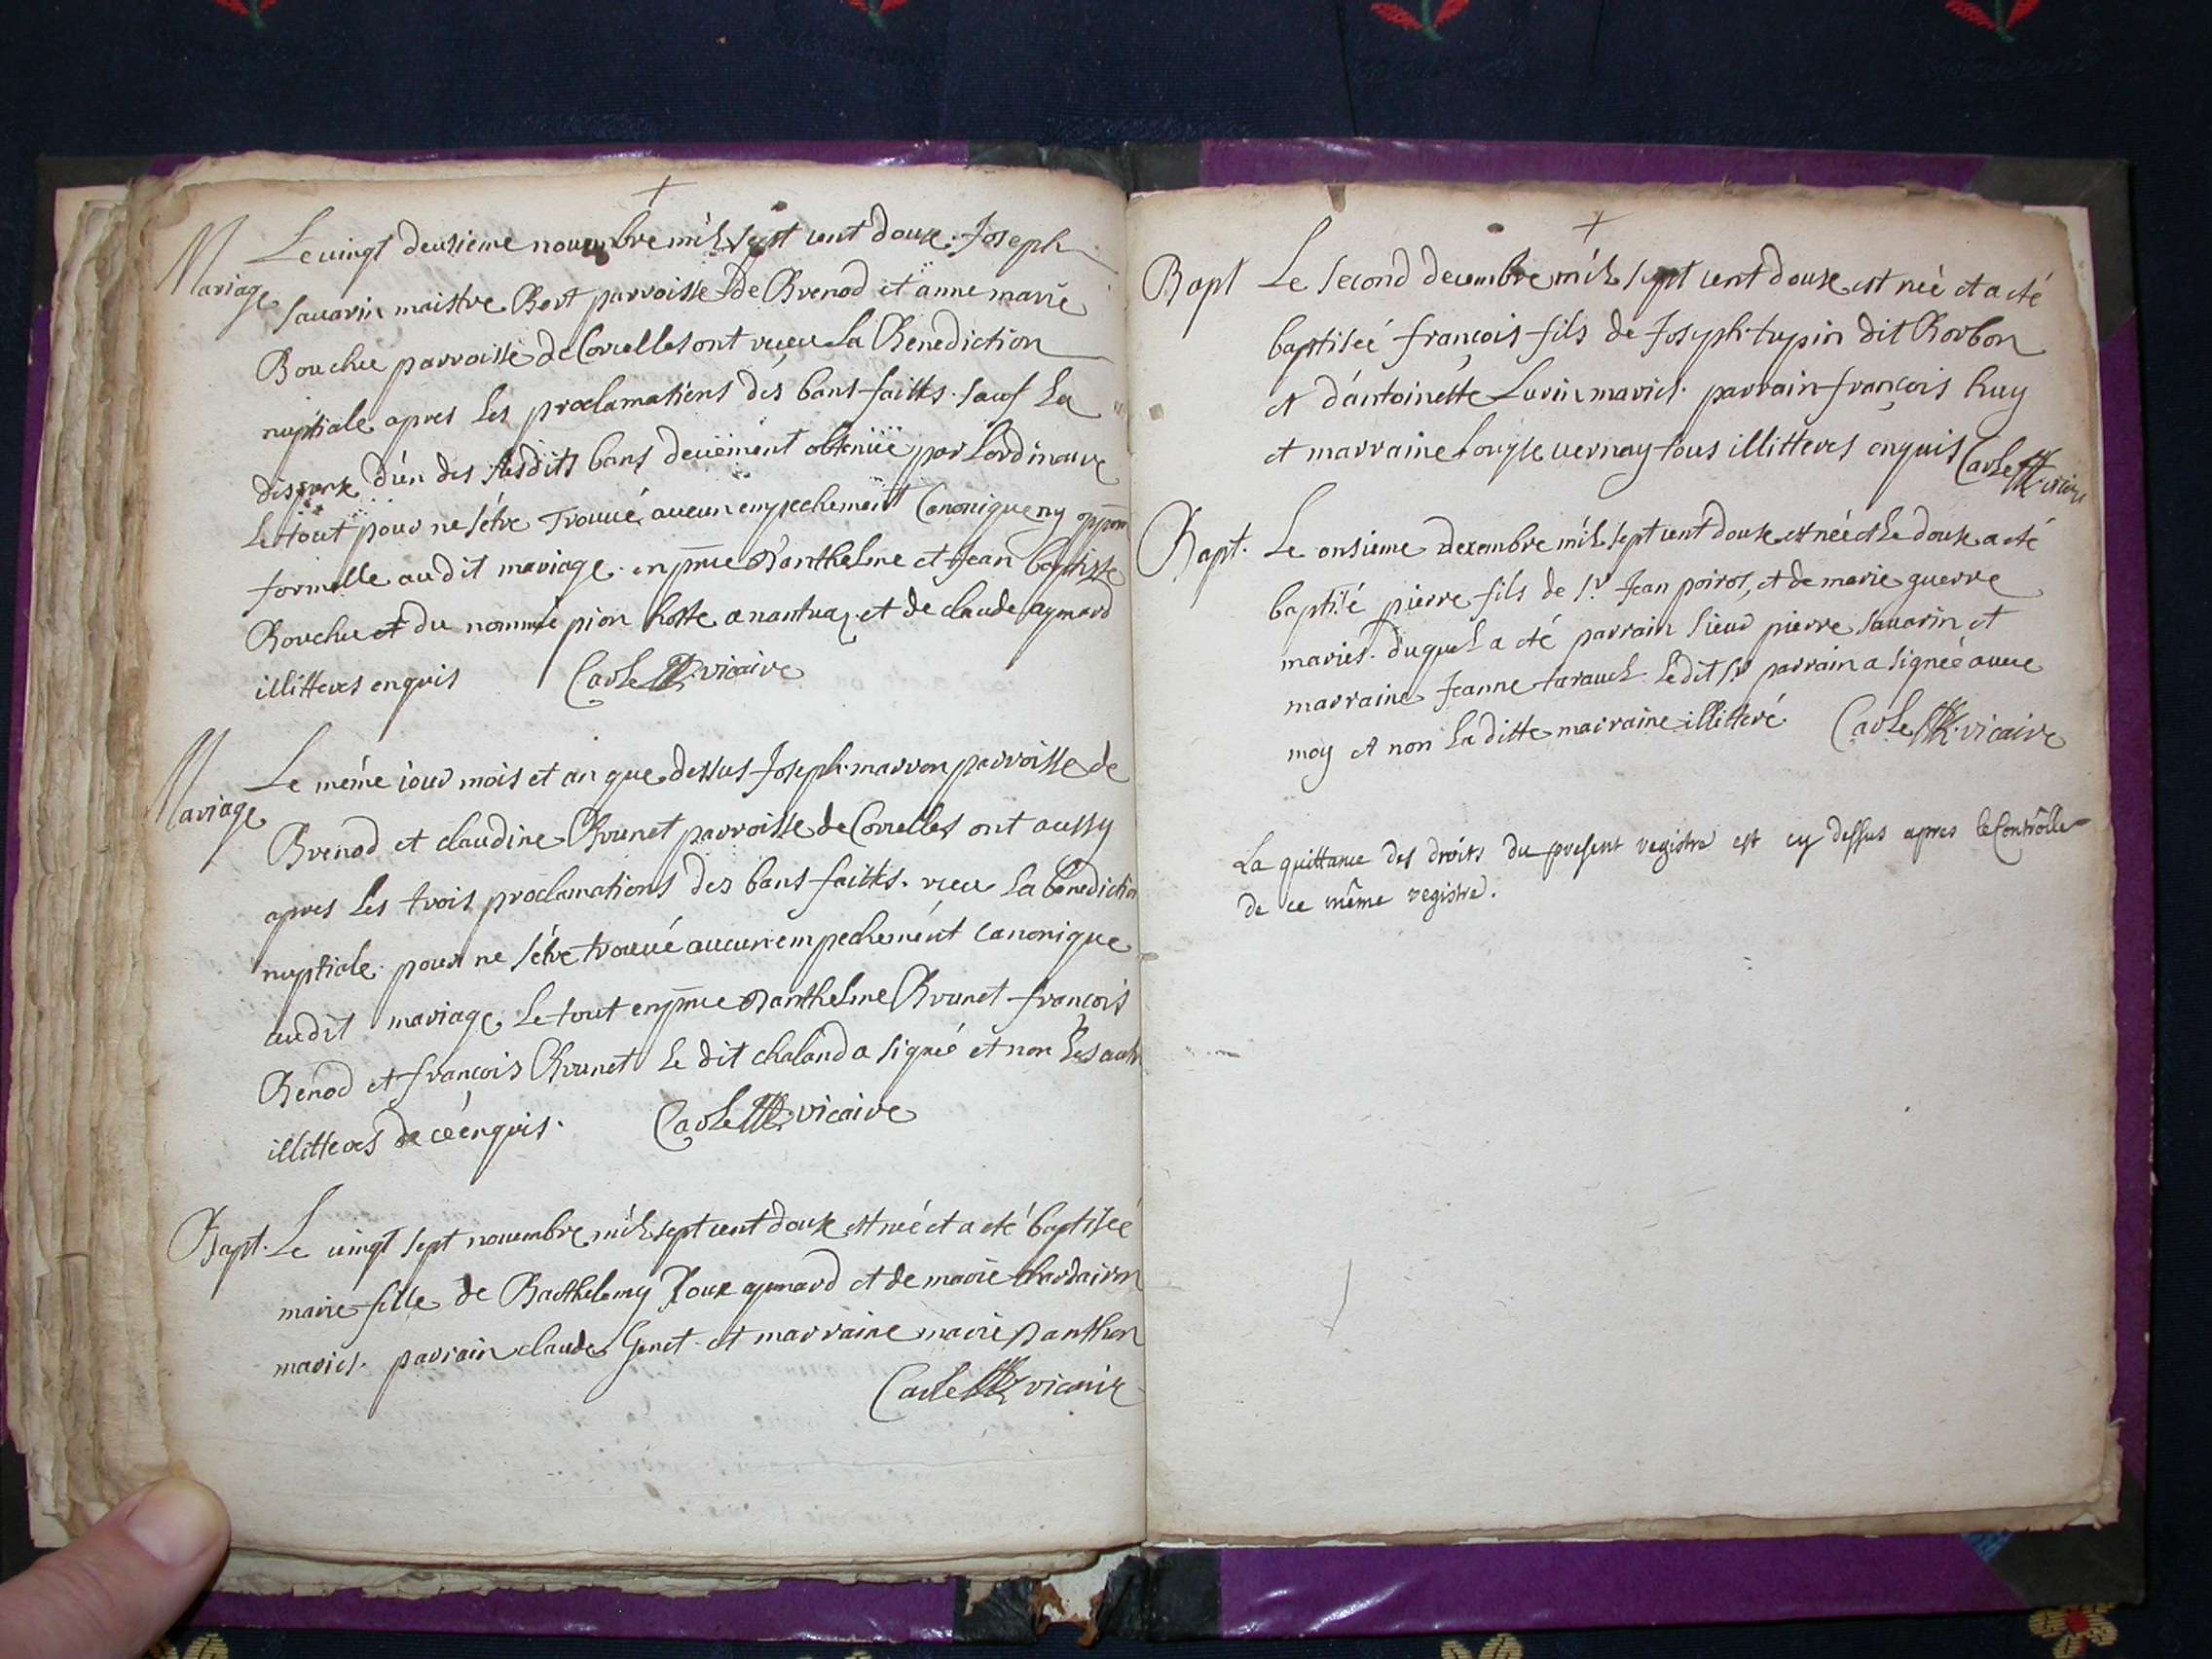 Mariage
Le vingt deusieme novembre mil sept cent douze Joseph
savarin maistre Bert parroisse de Brenod et anne marie
Bouchu parroisse de Corcelles ont reçeu La Benediction
nuptiale apres Les proclamations des bans faitts. sauf La
dispense d'un des susdits bans deuëment obtenüe par Lordinaire
Le tout pour ne s'étre Trouvé aucun empechement Canonique ny
formelle audit mariage. en pnce D'anthelme et Jean baptiste
Bouchu et du nommé pion hoste a nantua, et de claude aymard
illitteres enquis Carle vicaire
Mariage
Le méme iour mois et an que dessus Joseph marron parroisse de
Brenod et claudine Brunet parroisse de Corcelles ont aussy
apres Les trois proclamations des bans faitts. reçeu La benediction
nuptiale. pour ne s'étre trouvé aucun empechement canonique
audit mariage. Le tout en pnce D'anthelme Brunet françois
Benod et françois Brunet Le dit chaland a signé et non Les autr
illitteres de ce enquis. Carle vicaire
Bapt. Le vingt sept novembre mil sept cent douze est née et a eté baptiseé
marie fille de Barthelemy Roux aymard et de marie chardairon
mariés. parrain claude Genet et marraine marie panthon
Carle vicaire
Bapt Le second decembre mil sept cent douze est neé et a eté
baptiseé françois fils de Joseph tupin dit Borbon
et d'antoinette Lurin mariés. parrain françois huy
et marraine vernay tous illitteres enquis Carle vicaire
Bapt. Le onsieme decembre mil sept cent douze est neé et Le douze a eté
baptisé pierre fils de Sr. Jean poirot, et de marie guerre
mariés. duquel a eté parrain sieur pierre savarin et
marraine Jeanne taravel Ledit Sr parrain a signeé avec
moy et non La ditte marraine illitteré. Carle vicaire
La quittance des droits du present registre est cy dessus apres le Contrôlle
de ce même registre.